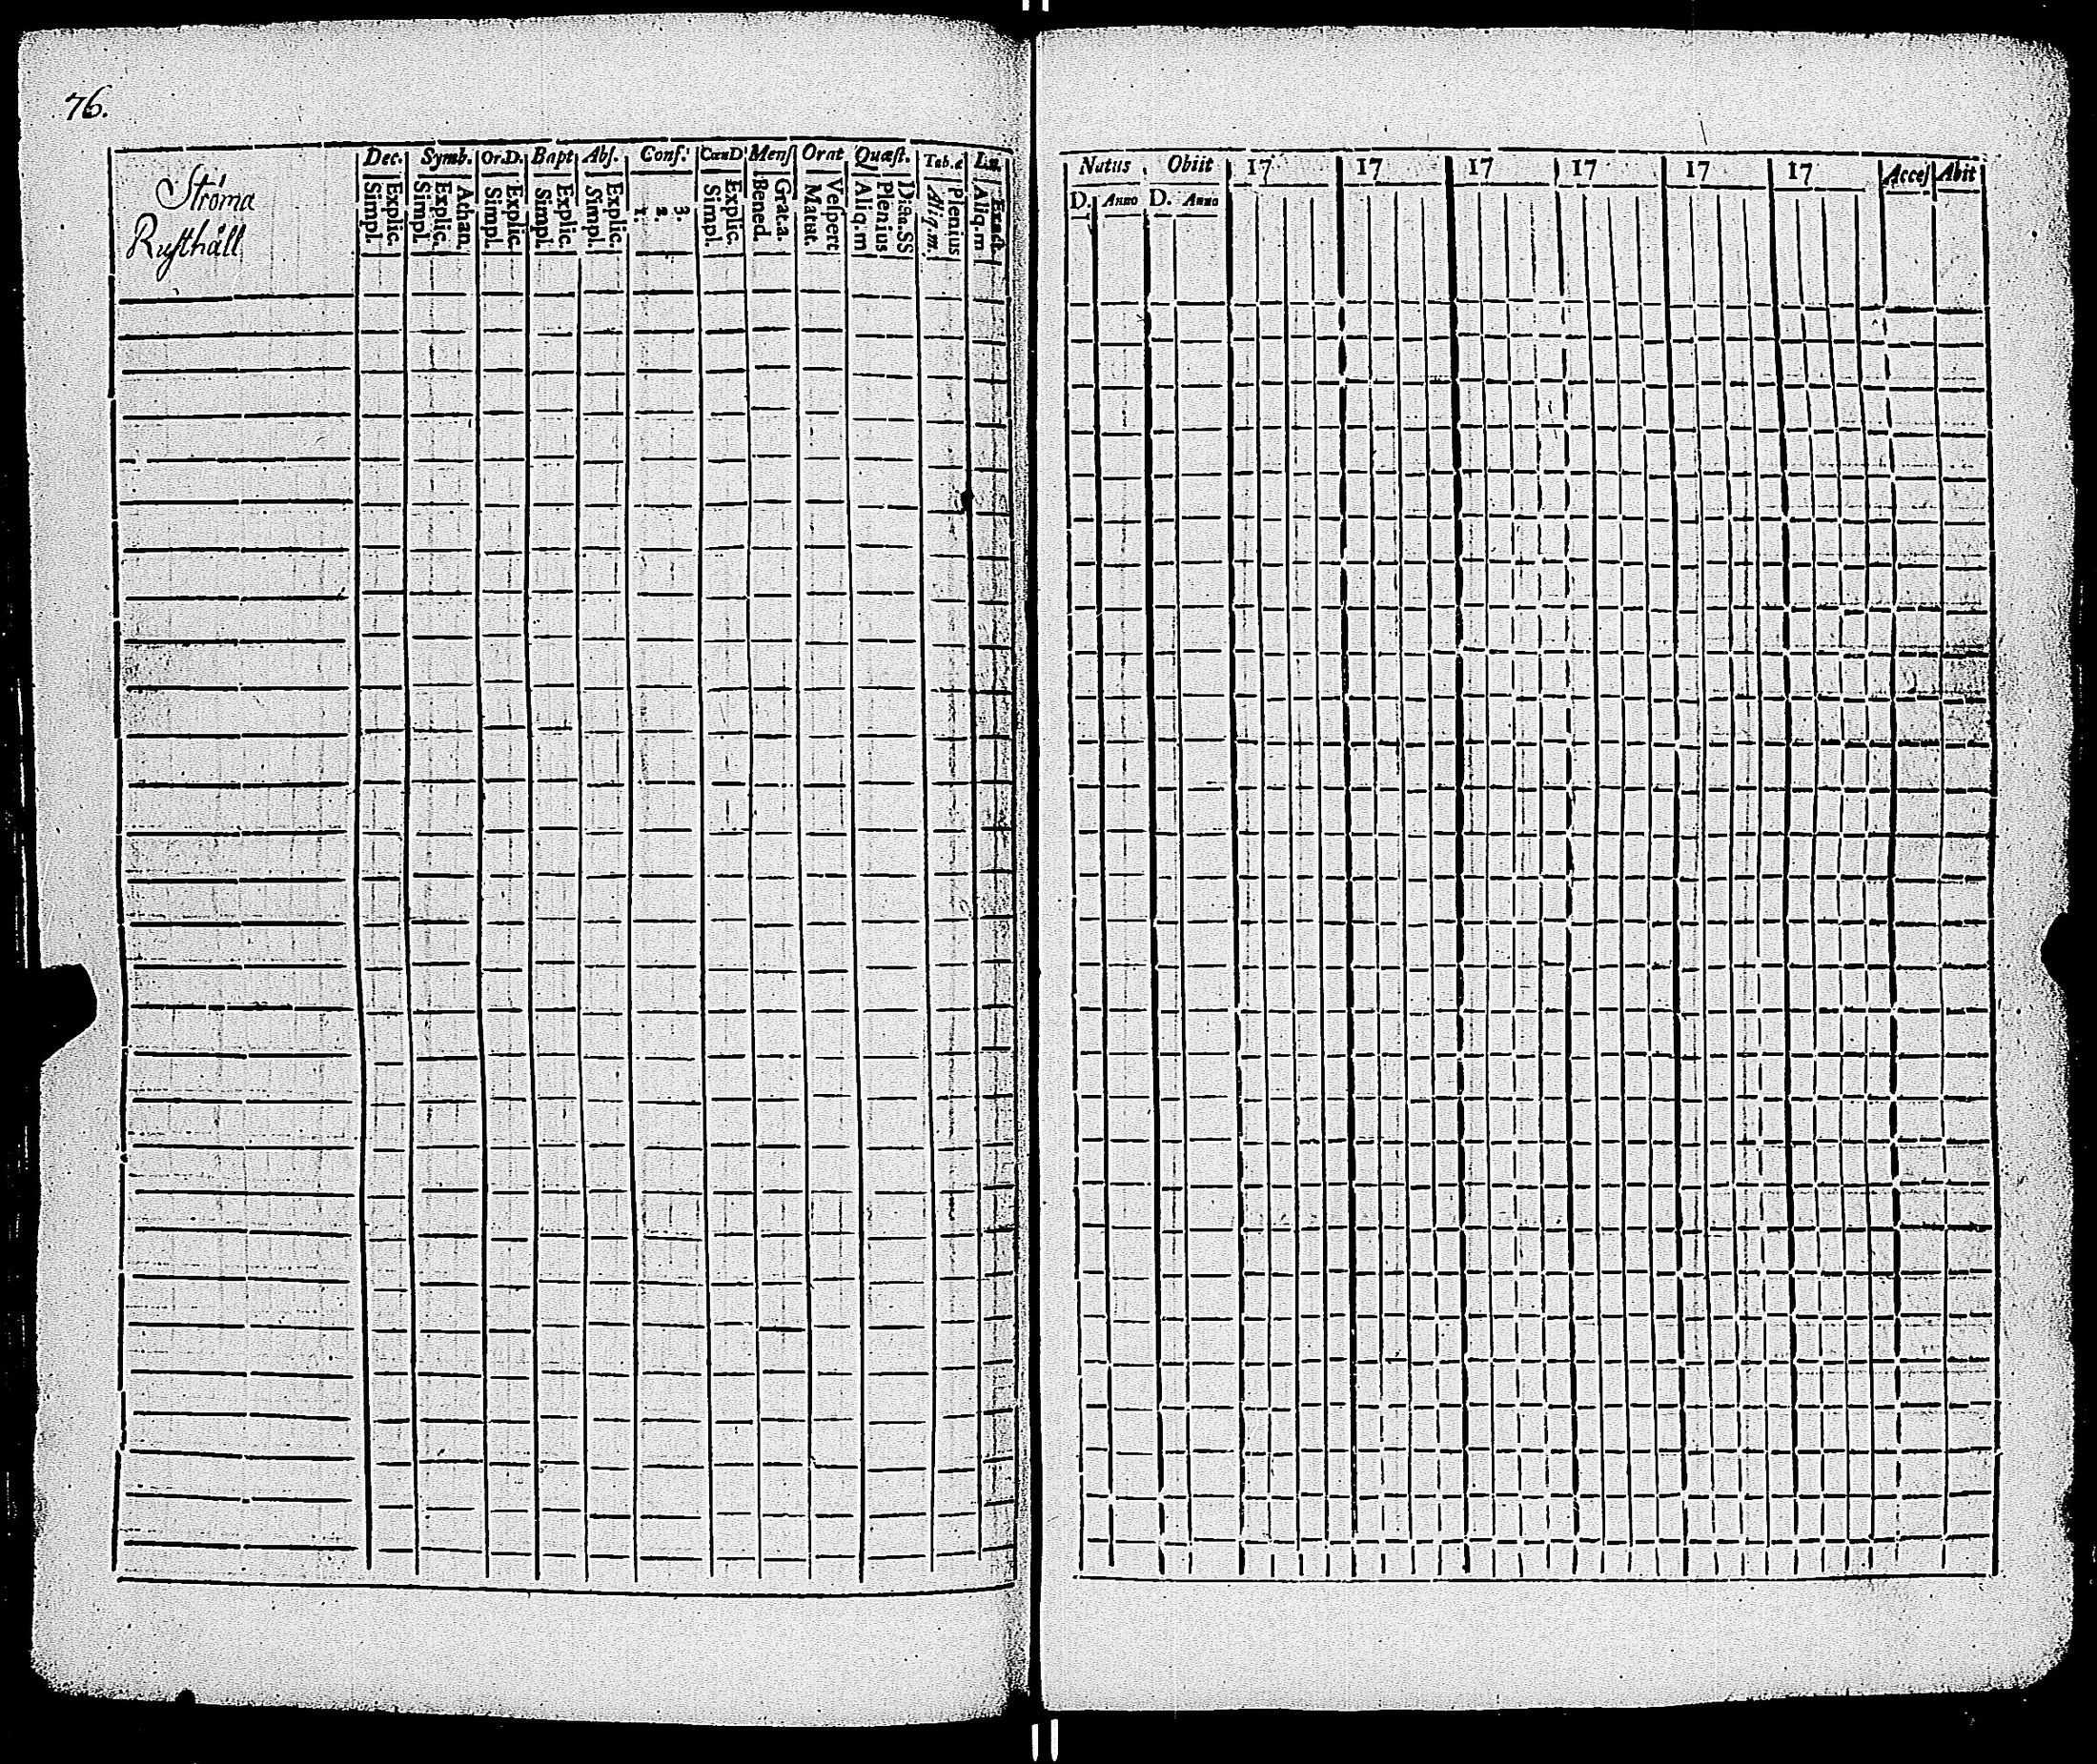 76.
Ströma
Rusthåll
Dec. Symb. Or.D. Bapt Abſ. Conf. CœnD Menſ Orat Quæſt. Tab.æ
Simpl. Explic. Simpl. Explic. Athan. Simpl. Explic. Simpl. Explic. Simpl. Explic. 1. 2. 3. Simpl. Explic. Bened. Grat.a. Matut. Veſpert Aliq.m Plenius Dicta.SS Aliq.m. Plenius Aliq.m Exact.
Natus Obiit 17 17 17 17 17 17 Acceſ Abit
D. Anno D. Anno